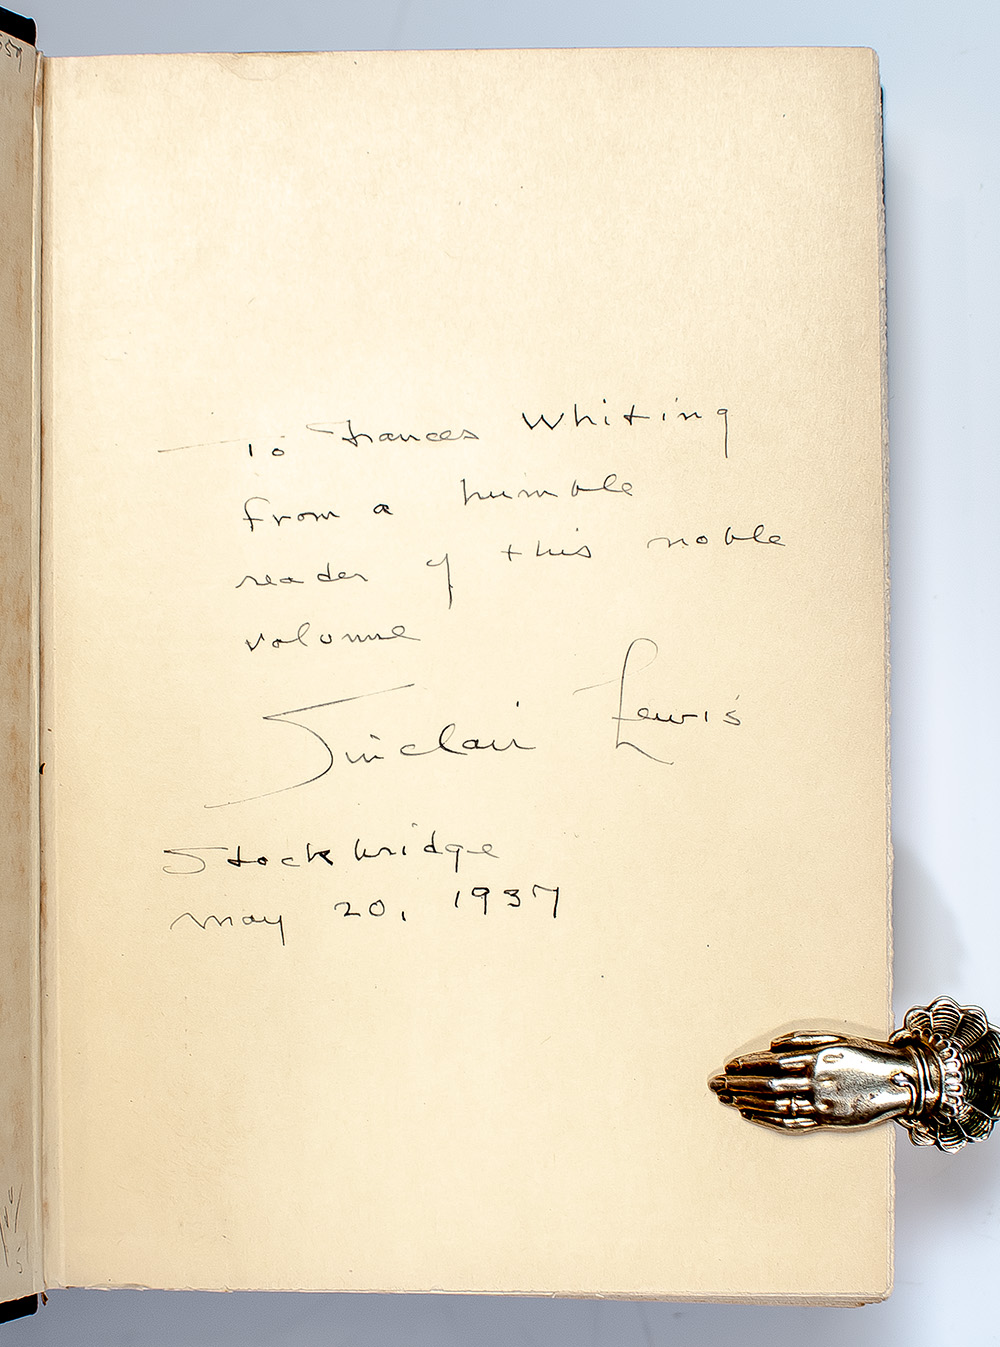 To Frances Whiting
from a humble
reader of this noble
volume
Sinclair Lewis
Stockbridge
May 20, 1937